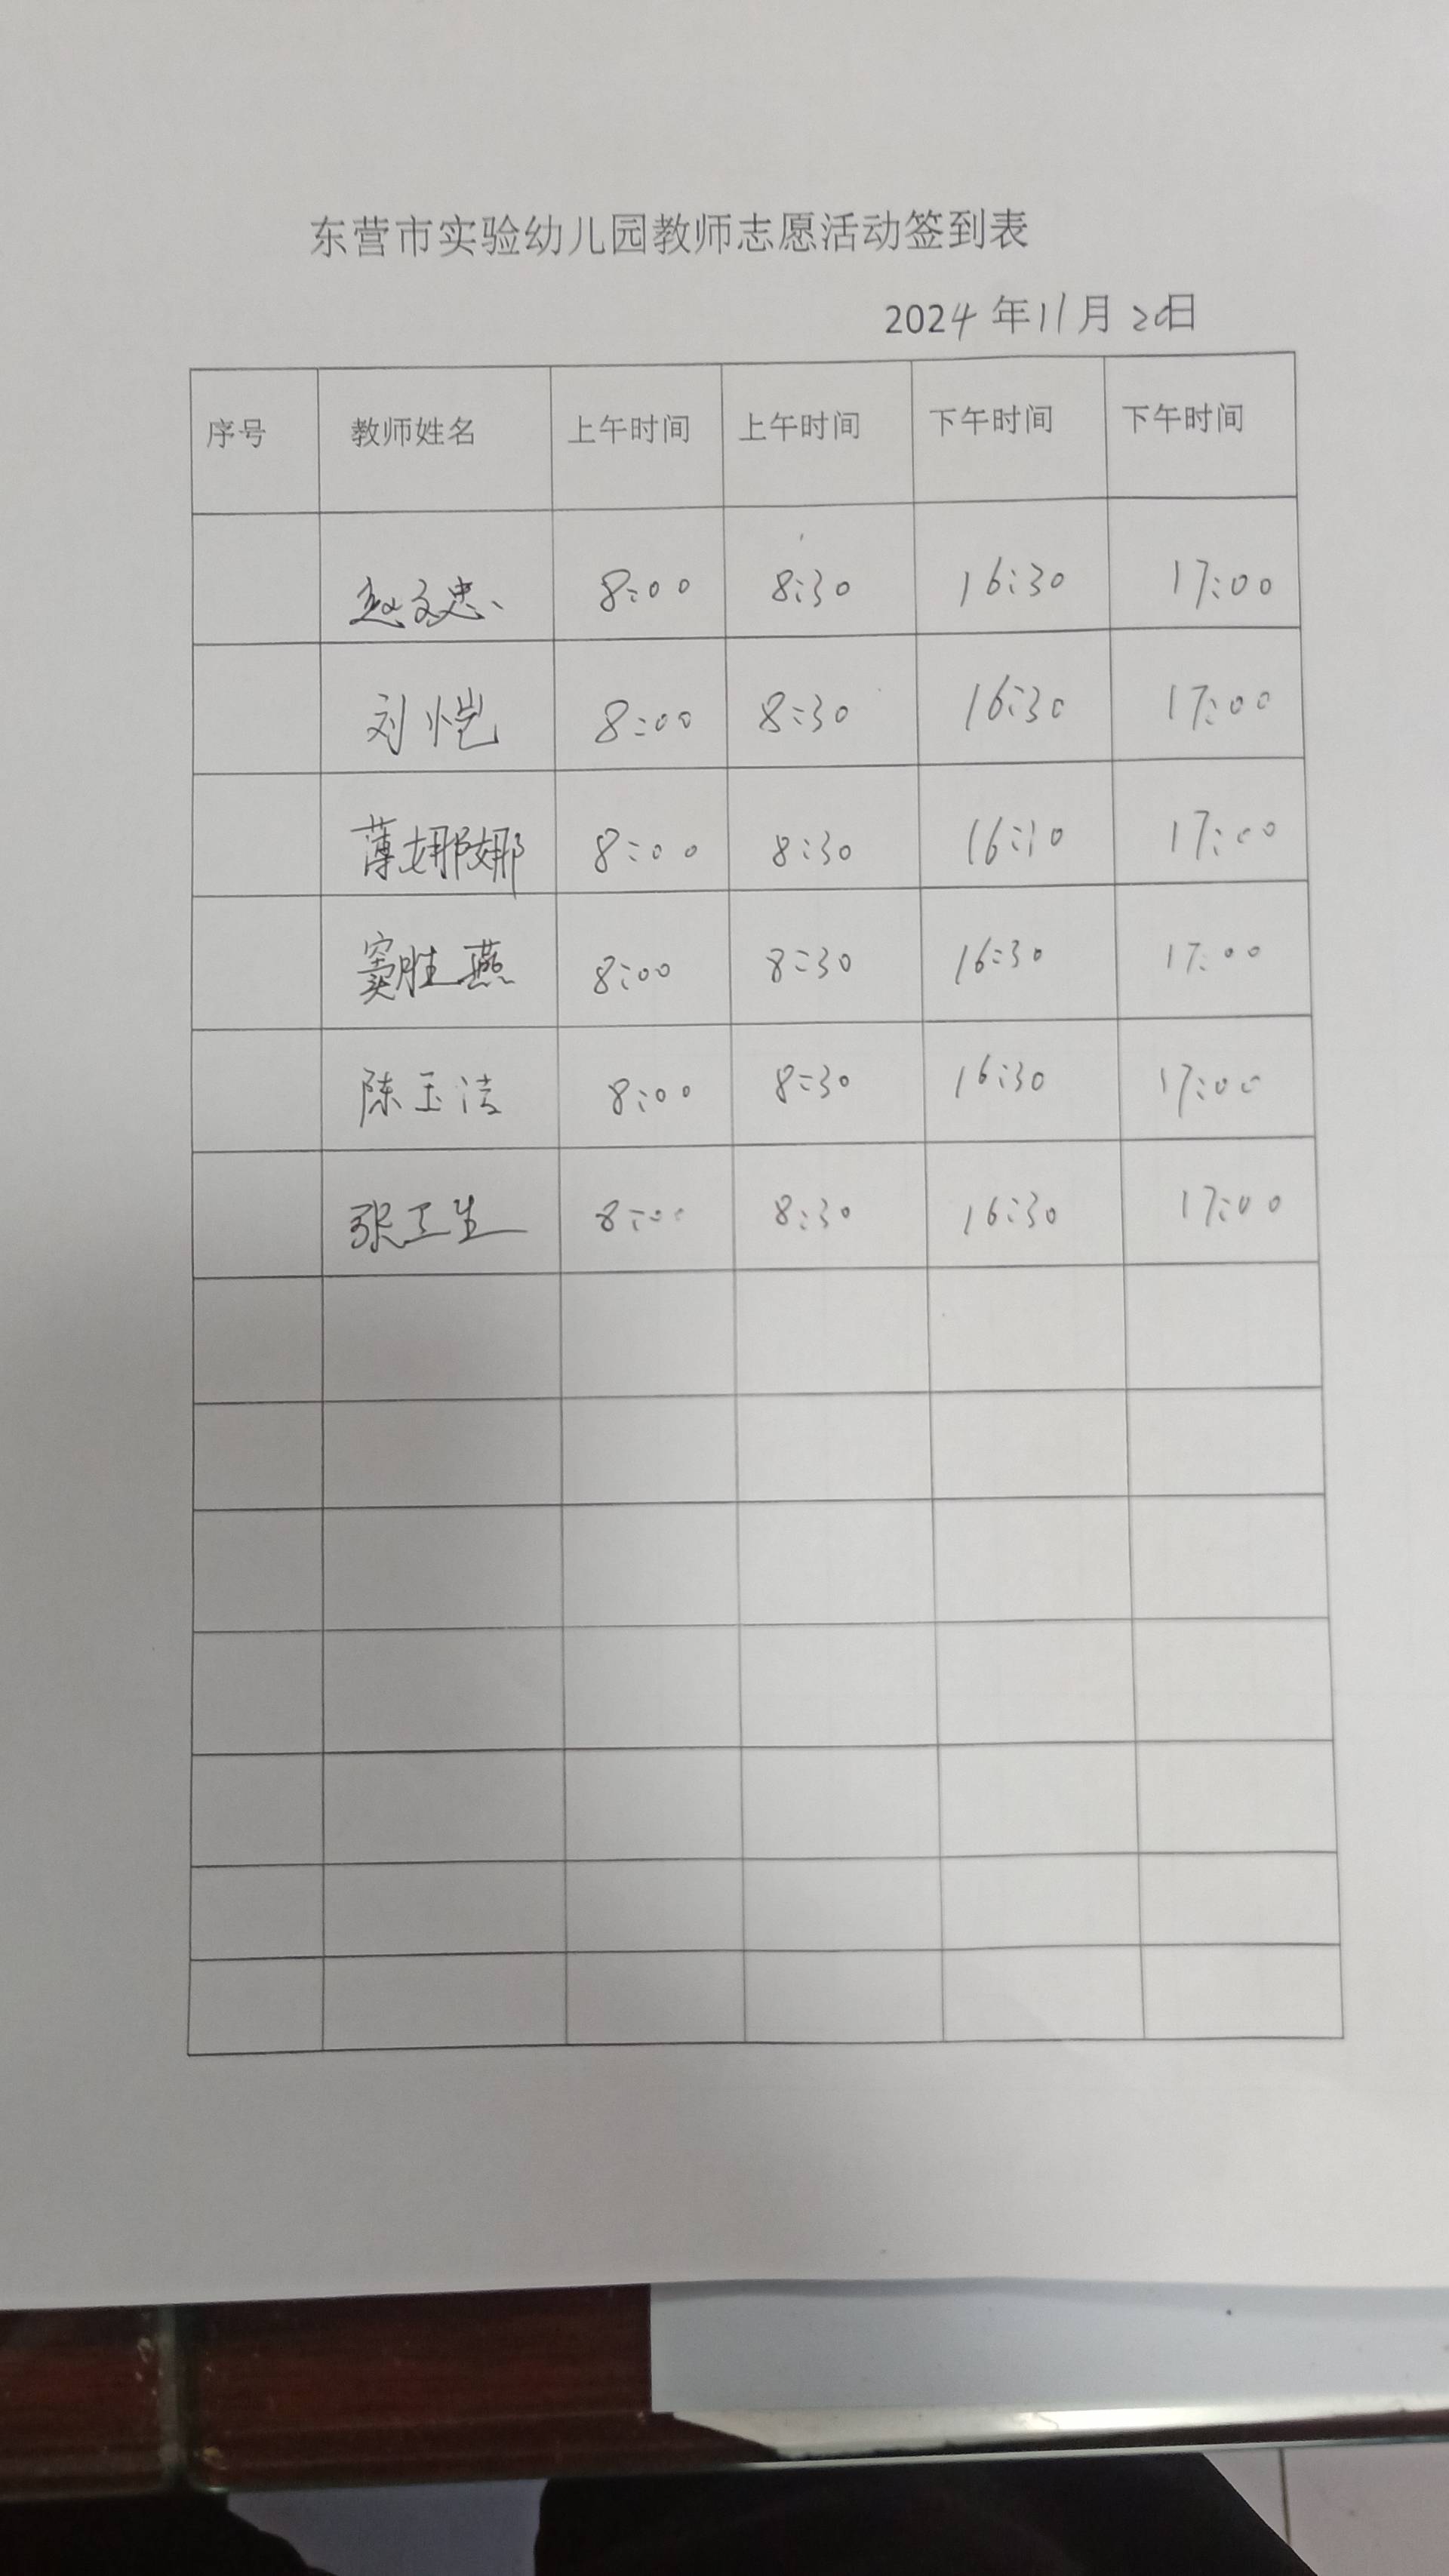 东营市实验幼儿园教师志愿活动签到表
2024 年 11 月 20日
序号 教师姓名 上午时间 上午时间 下午时间 下午时间
赵文忠 8:00 8:30 16:30 17:00
刘恺 8:00 8:30 16:30 17:00
薄娜娜 8:00 8:30 16:30 17:00
窦胜燕 8:00 8:30 16:30 17:00
陈玉洁 8:00 8:30 16:30 17:00
张卫生 8:00 8:30 16:30 17:00